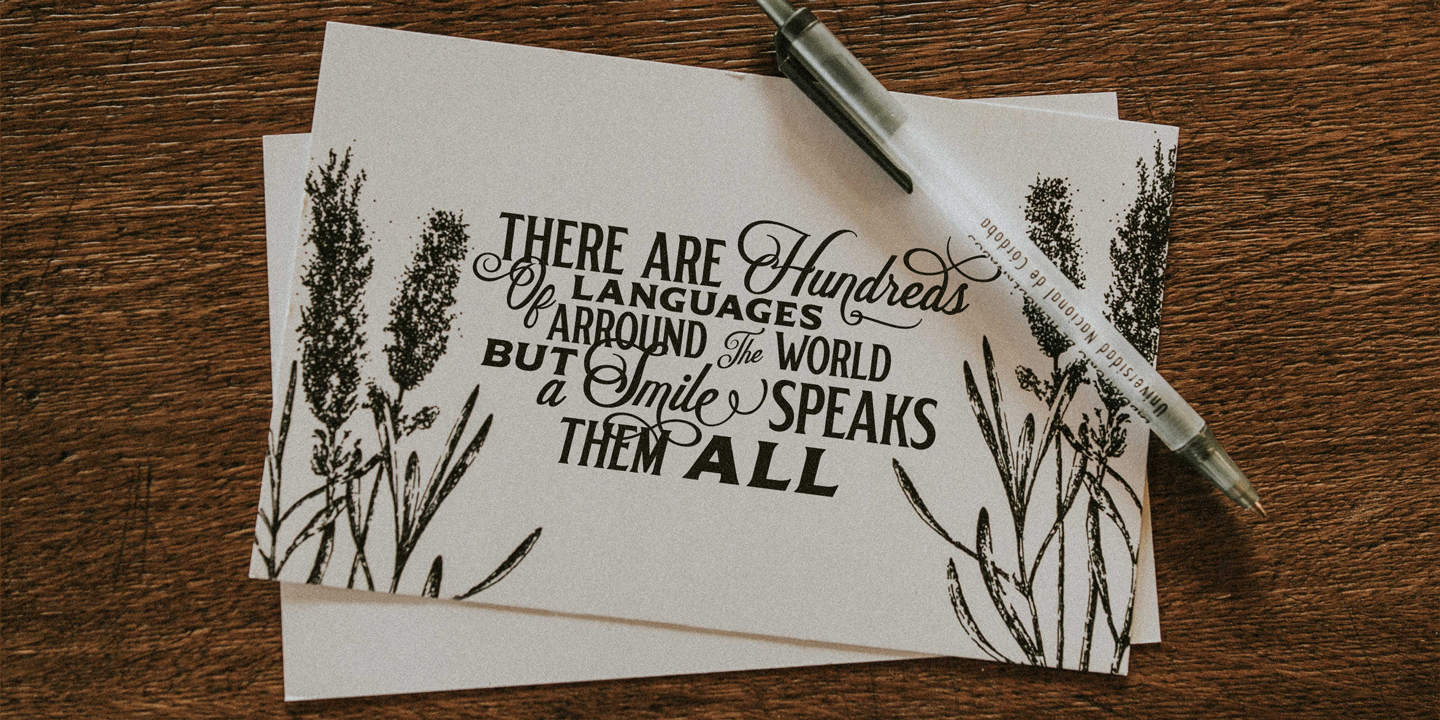 THERE ARE Hundreds
Of LANGUAGES
ARROUND The WORLD
BUT a Smile SPEAKS
THEM ALL
Universidad Nacional de Córdoba